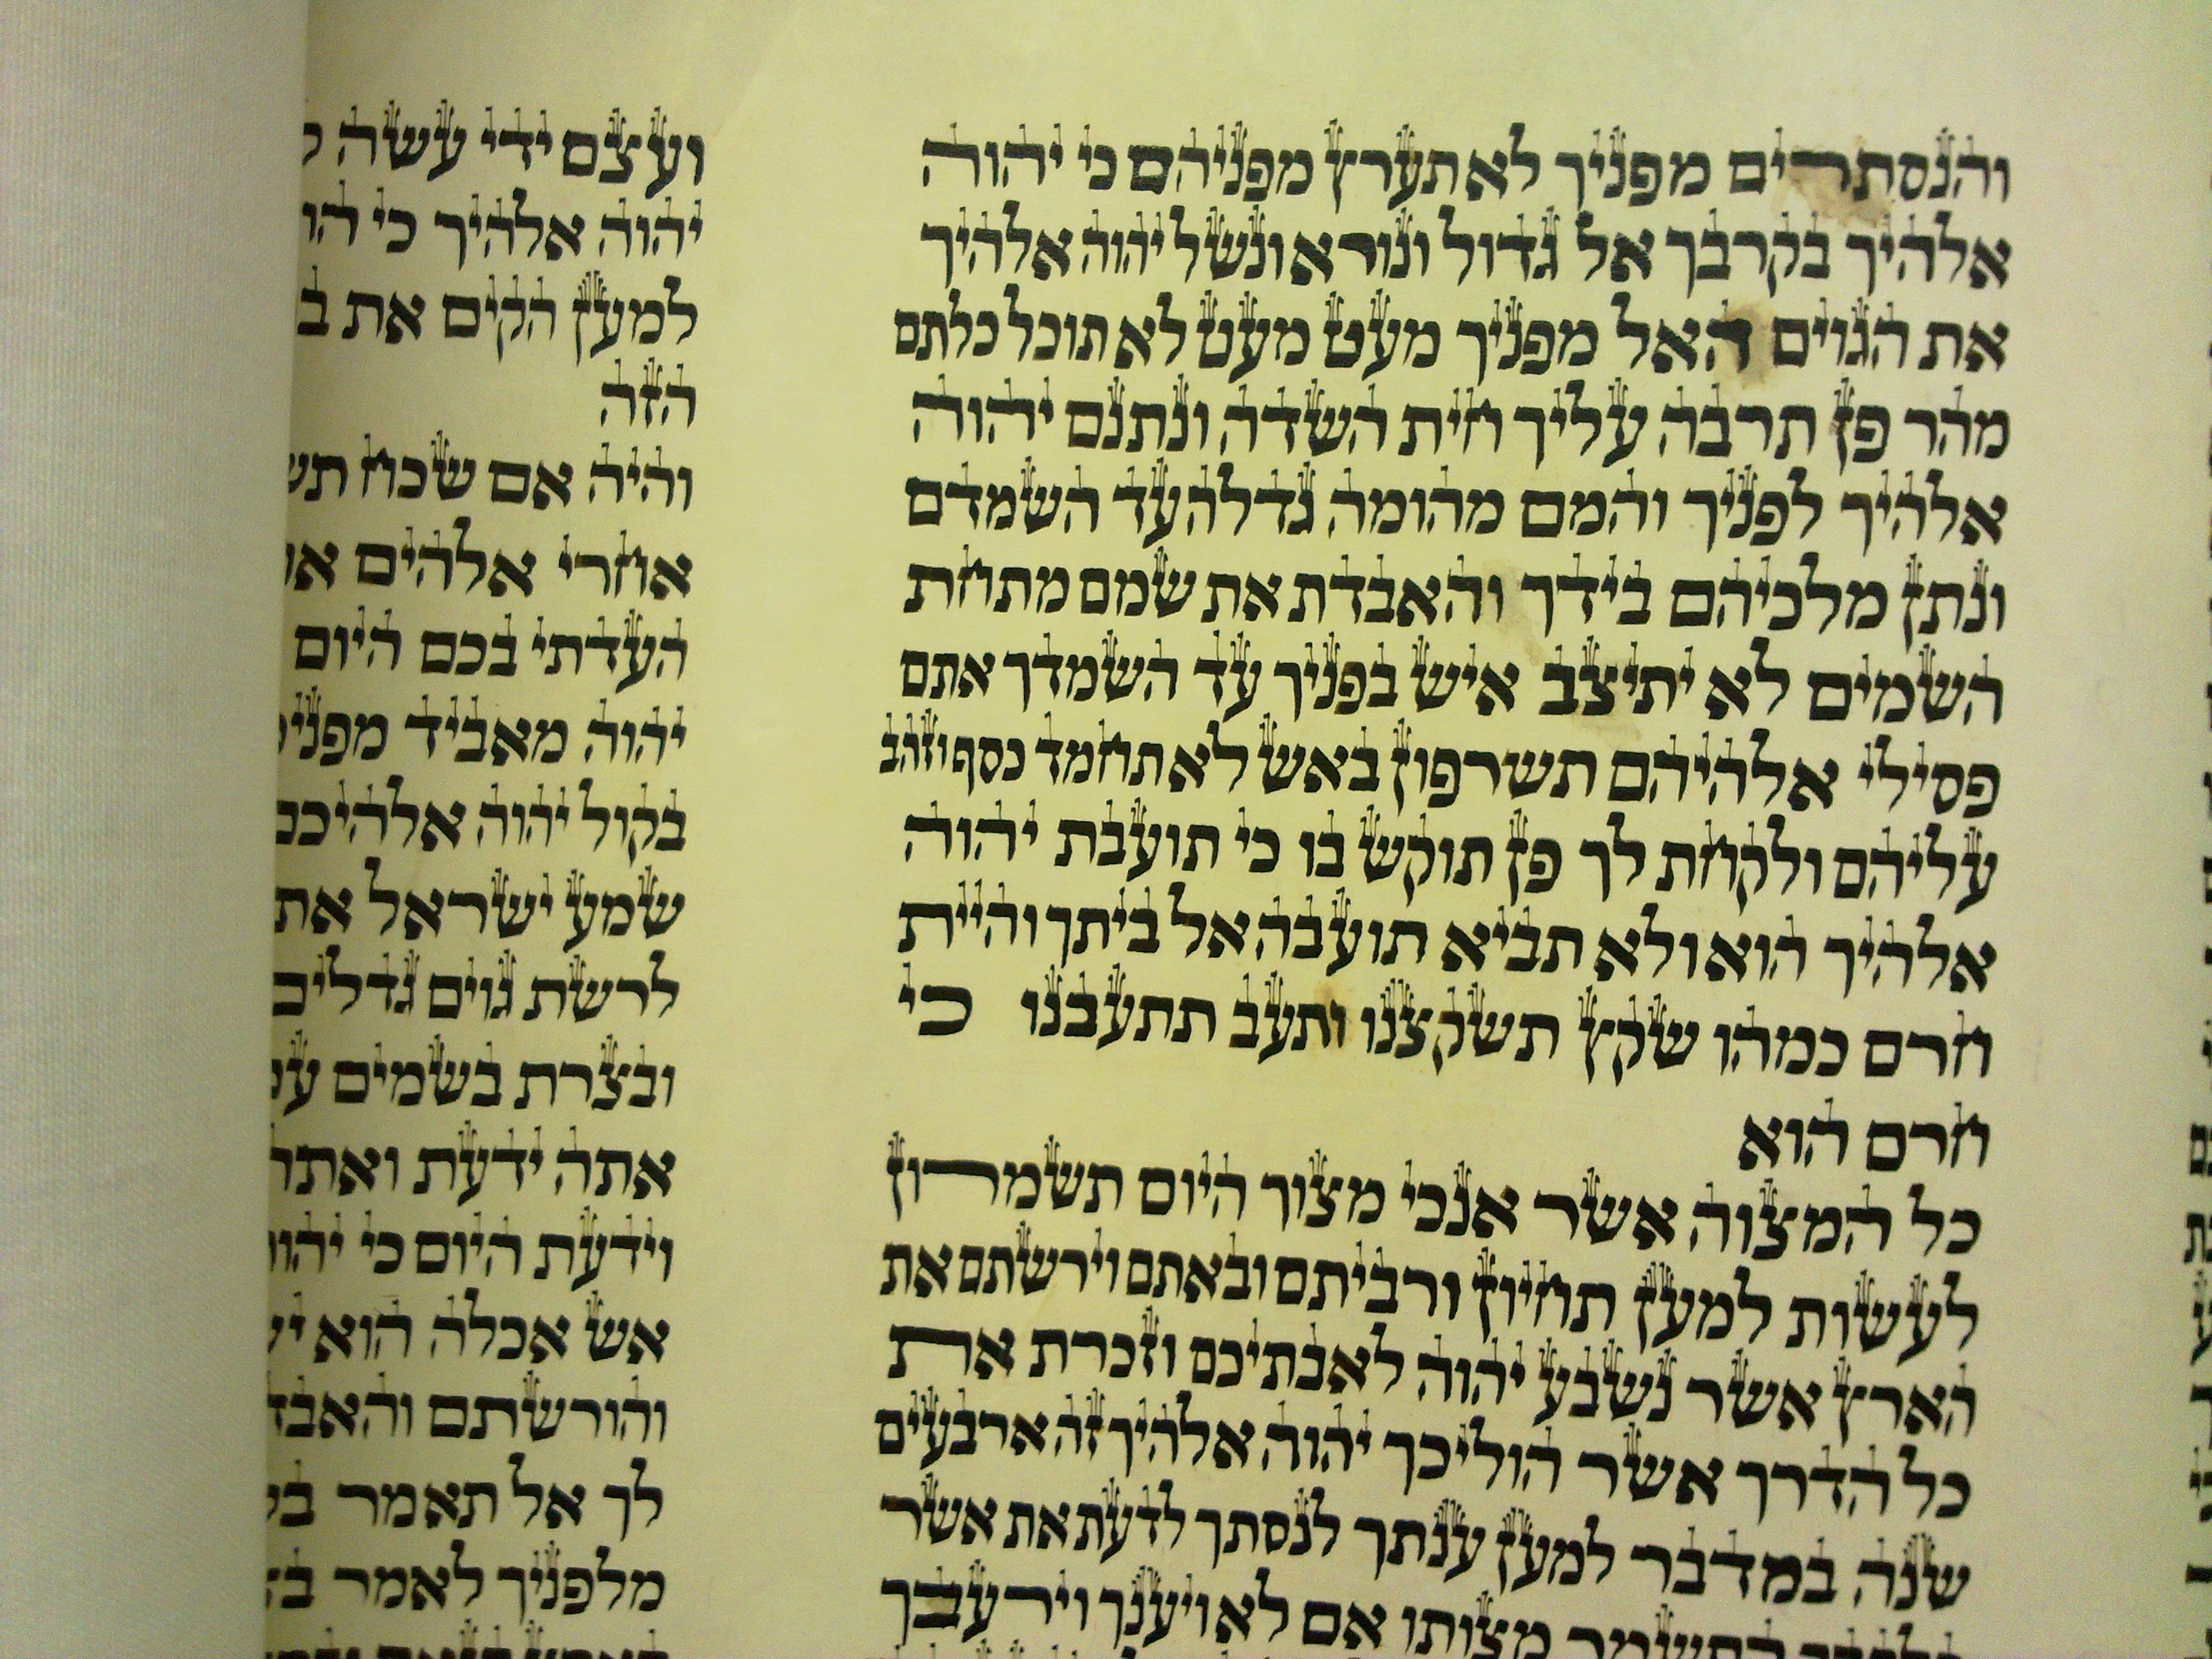 והנסתרים מפניך לא תערץ מפניהם כי יהוה
אלהיך בקרבך אל גדול ונורא ונשל יהוה אלהיך
את הגוים האל מפניך מעט מעט לא תוכל כלתם
מהר פן תרבה עליך חית השדה ונתנם יהוה
אלהיך לפניך והמם מהומה גדלה עד השמדם
ונתן מלכיהם בידך והאבדת את שמם מתחת
השמים לא יתיצב איש בפניך עד השמדך אתם
פסילי אלהיהם תשרפון באש לא תחמד כסף וזהב
עליהם ולקחת לך פן תוקש בו כי תועבת יהוה
אלהיך הוא ולא תביא תועבה אל ביתך והיית
חרם כמהו שקץ תשקצנו ותעב תתעבנו כי
חרם הוא
כל המצוה אשר אנכי מצוך היום תשמרון
לעשות למען תחיון ורביתם ובאתם וירשתם את
הארץ אשר נשבע יהוה לאבתיכם וזכרת את
כל הדרך אשר הוליכך יהוה אלהיך זה ארבעים
שנה במדבר למען ענתך לנסתך לדעת את אשר
מצותו אם לא ויענך וירעבך
ועצם ידי עשה
יהוה אלהיך כי
למען הקים את
הזה
והיה אם שכח
אחרי אלהים
העדתי בכם היום
יהוה מאביד
בקול יהוה
שמע ישראל את
לרשת גוים
ובצרת בשמים
אתה ידעת
וידעת היום כי
אש אכלה הוא
והורשתם
לך אל תאמר
מלפניך לאמר